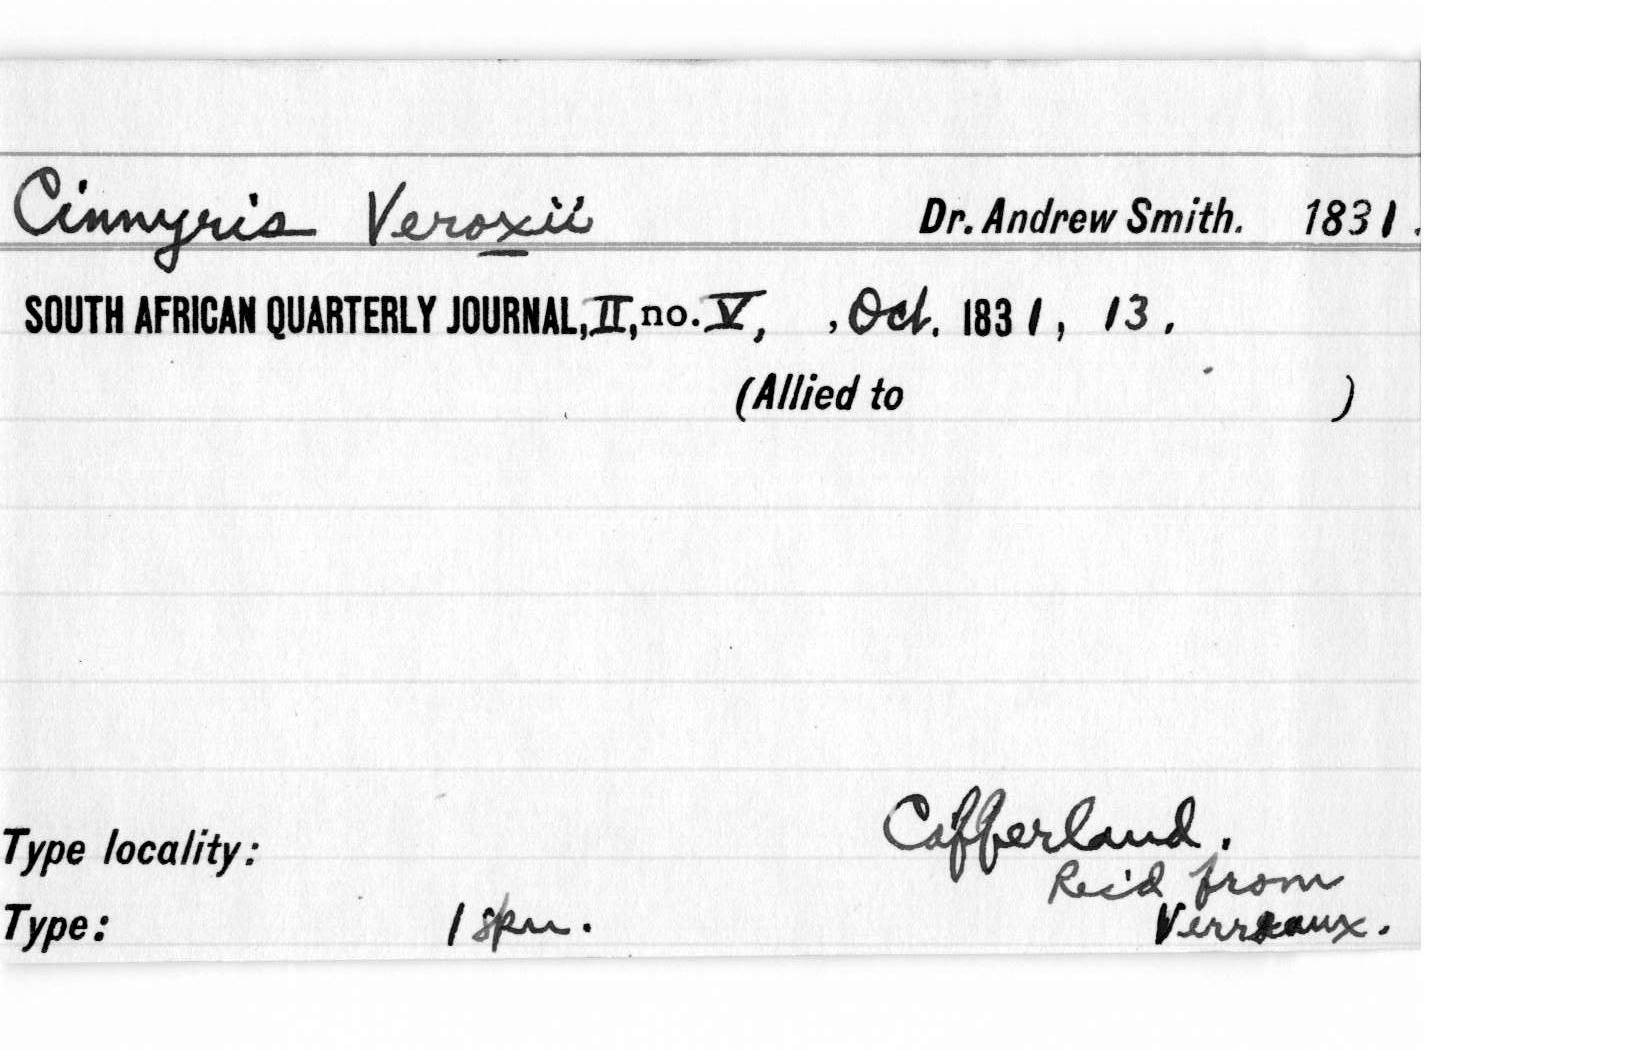 Cinnyris Veroxii Dr. Andrew Smith. 1831.
SOUTH AFRICAN QUARTERLY JOURNAL, II, no. V, , Oct. 1831, 13.
(Allied to )
Type locality: Cafferland.
Rec'd from
Type: 1 spm. Verreaux.